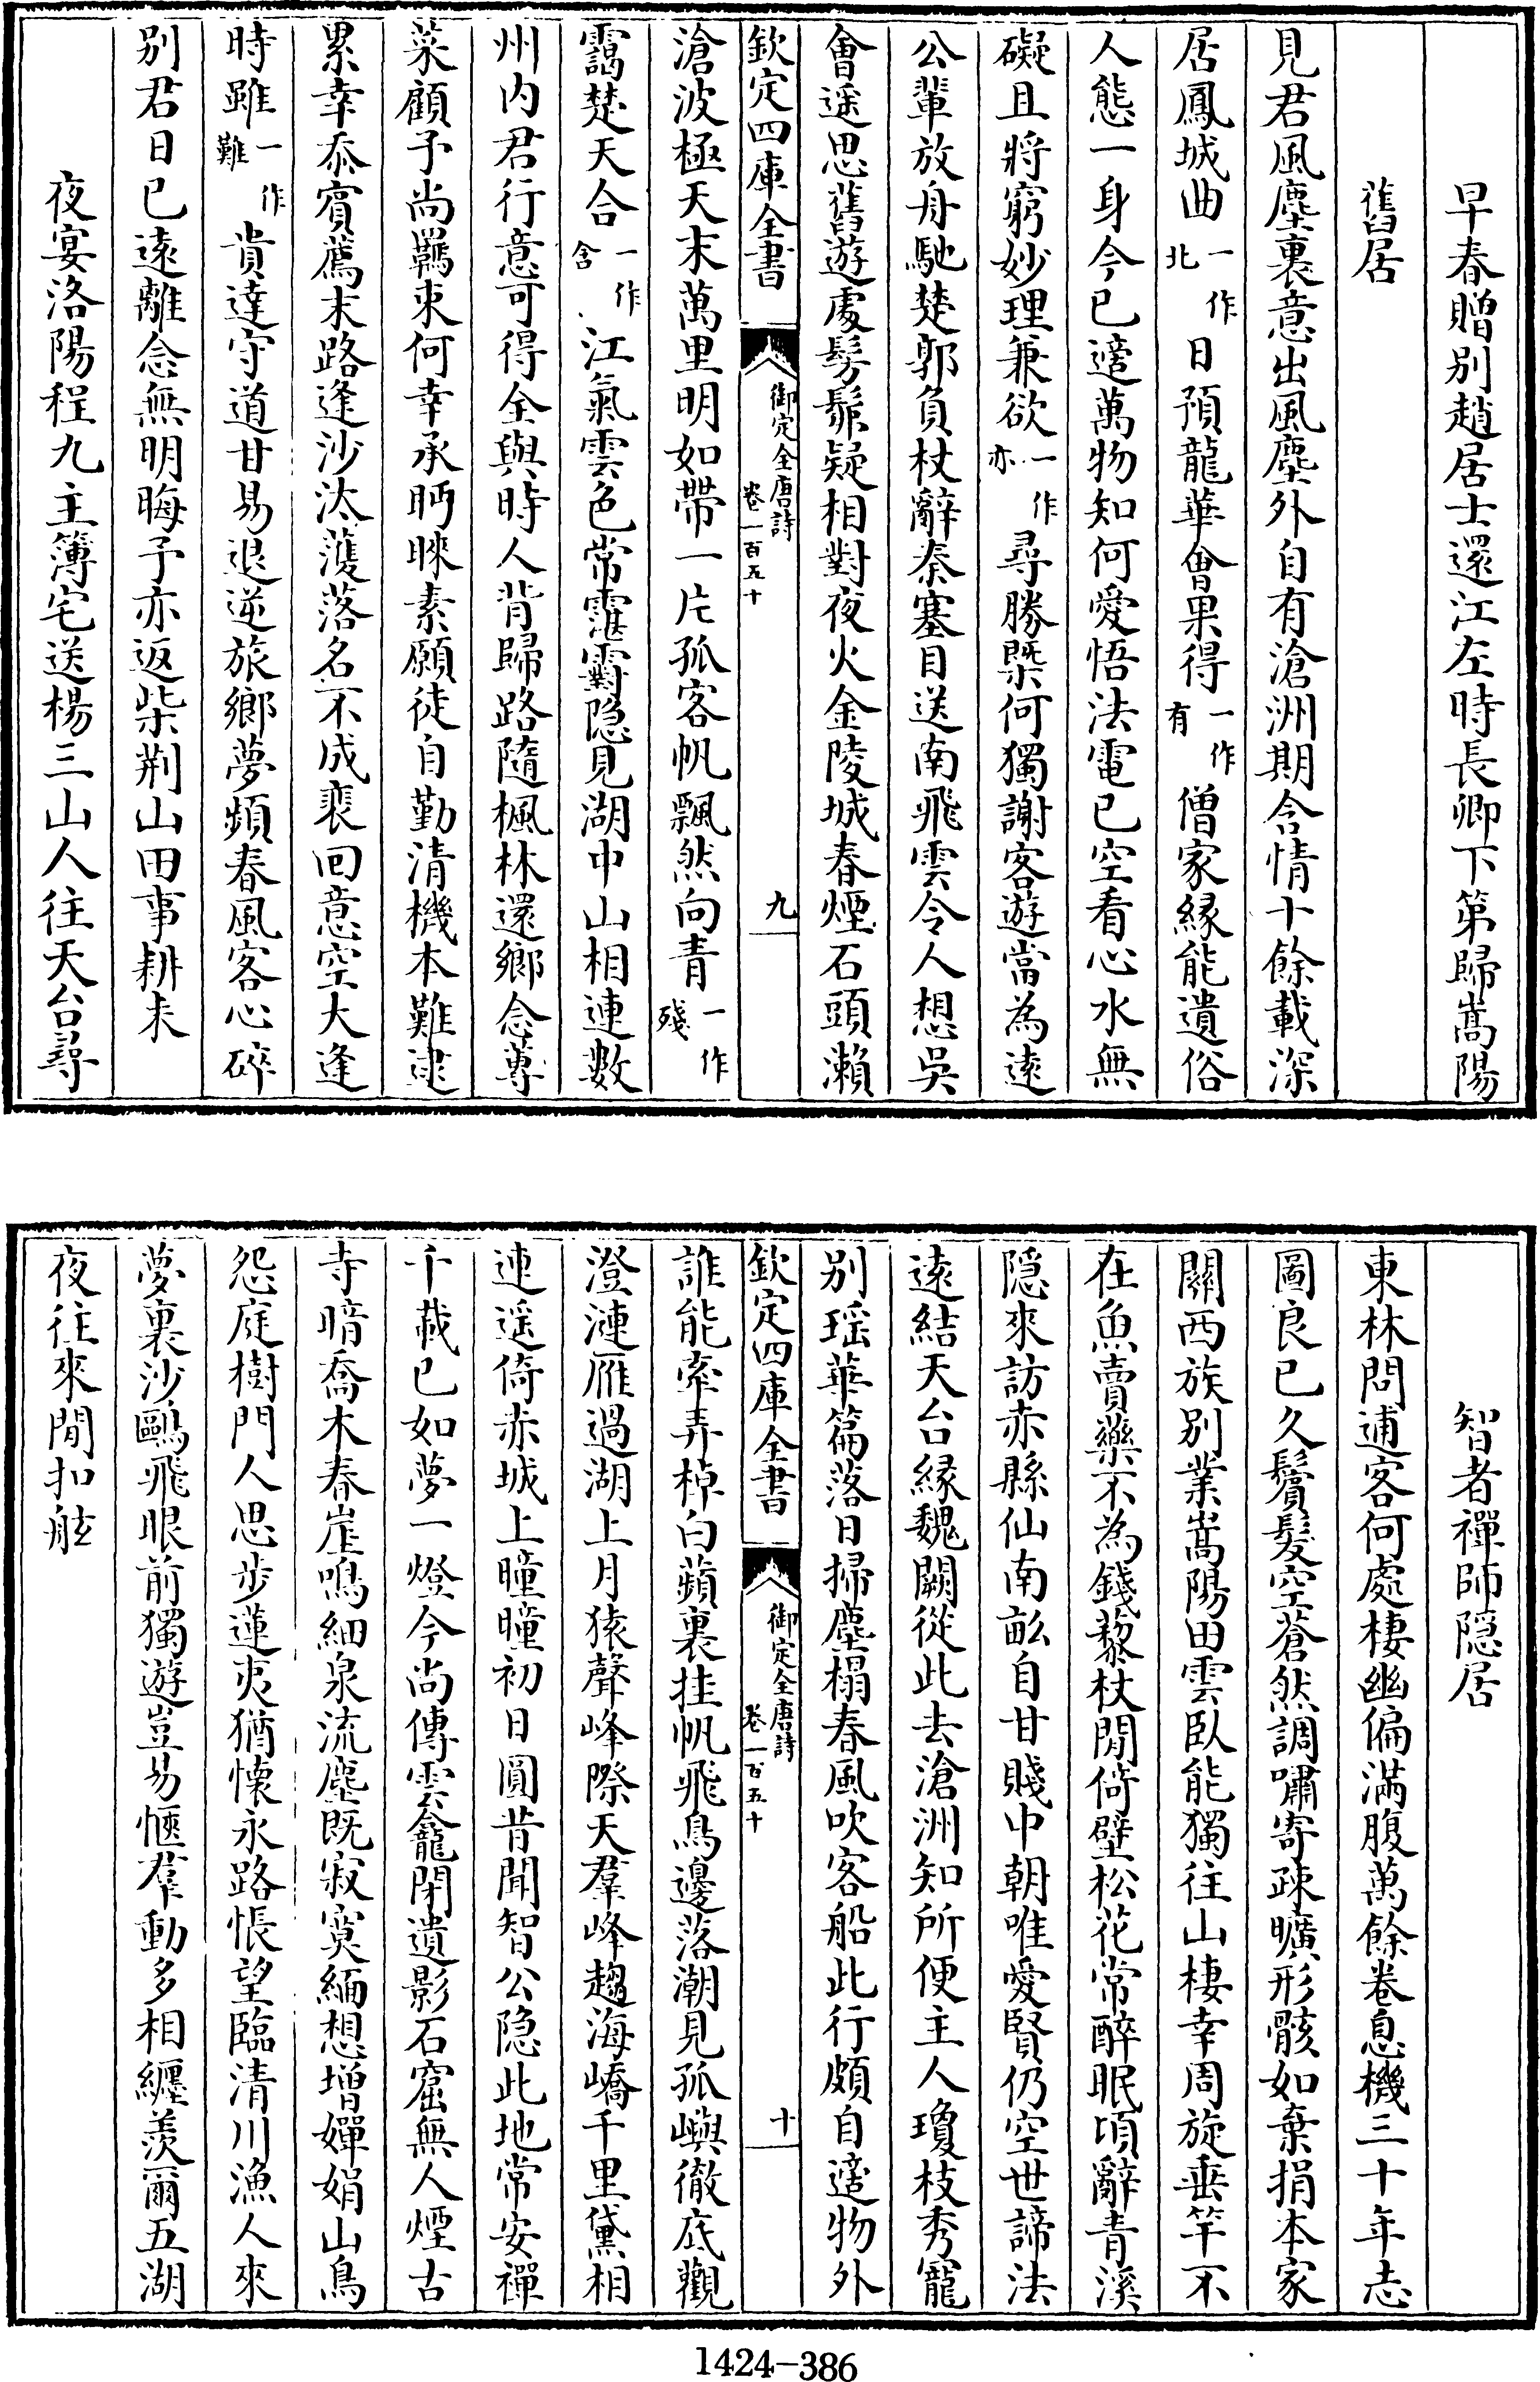 早春贈别趙居士還江左時長卿下第歸嵩陽
舊居
見君風塵裏意出風塵外自有滄洲期含情十餘載深
居鳳城曲一作北日預龍華會果得一作有僧家緣能遺俗
人態一身今已適萬物知何愛悟法電已空看心水無
礙且將窮妙理兼欲一作亦尋勝槩何獨謝客遊當為遠
公輩放舟馳楚郭負杖辭秦塞目送南飛雲令人想吳
會遥思舊遊處髣髴疑相對夜火金陵城春煙石頭瀨
欽定四庫全書 御定全唐詩 卷一百五十 九
滄波極天末萬里明如帶一片孤客帆飄然向青一作殘
靄楚天合一作含江氣雲色常霮䨴隠見湖中山相連數
州内君行意可得全與時人背歸路隨楓林還鄉念蓴
菜顧予尚羈束何幸承眄睞素願徒自勤清機本難逮
累幸忝賓薦末路逢沙汰濩落名不成裴回意空大逢
時雖一作難貴達守道甘易退逆旅鄉夢頻春風客心碎
别君日已遠離念無明晦予亦返柴荆山田事耕耒
夜宴洛陽程九主簿宅送楊三山人往天台尋
智者禪師隠居
東林問逋客何處棲幽偏滿腹萬餘卷息機三十年志
圖良已久鬢髮空蒼然調嘯寄疎曠形骸如棄捐本家
關西族别業嵩陽田雲臥能獨往山棲幸周旋垂竿不
在魚賣藥不為錢藜杖閒倚壁松花常醉眠頃辭青溪
隠來訪赤縣仙南畝自甘賤中朝唯愛賢仍空世諦法
遠結天台緣魏闕從此去滄洲知所便主人瓊枝秀寵
别瑶華篇落日掃塵榻春風吹客船此行頗自適物外
欽定四庫全書 御定全唐詩 卷一百五十 十
誰能牽弄棹白蘋裏挂帆飛鳥邊落潮見孤嶼徹底觀
澄漣雁過湖上月猿聲峰際天羣峰趨海嶠千里黛相
連遥倚赤城上曈曈初日圓昔聞智公隠此地常安禪
千載已如夢一燈今尚傳雲龕閉遺影石窟無人煙古
寺暗喬木春崖鳴細泉流塵既寂寞緬想增嬋娟山鳥
怨庭樹門人思步蓮夷猶懷永路悵望臨清川漁人來
夢裏沙鷗飛眼前獨遊豈易愜羣動多相纏羨爾五湖
夜往來閒扣舷
1424-386